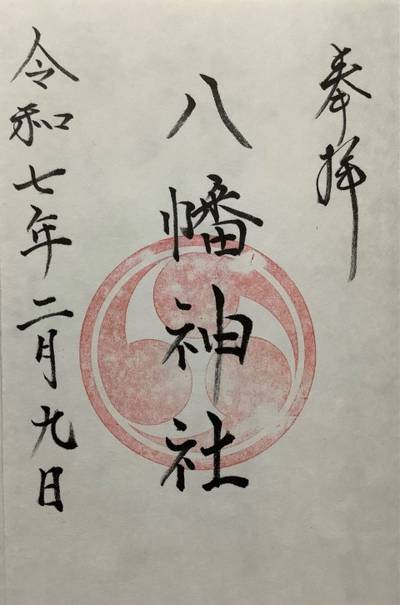 奉拝
八幡神社
令和七年二月九日